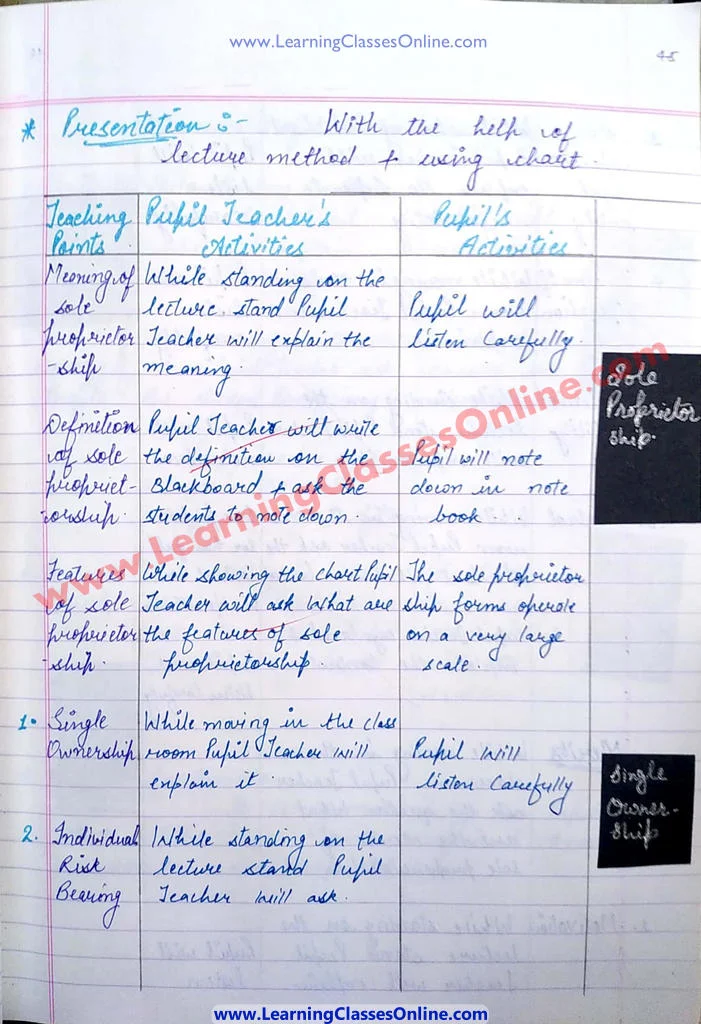 www.LearningClassesOnline.com
45
* Presentation :- With the help of
lecture method + using chart.
Teaching
Points.
Pupil Teacher's
Activities
Pupil's
Activities
Meaning of
sole
proprietor
-ship
While standing on the
lecture stand Pupil
Teacher will explain the
meaning.
Pupil will
listen Carefully.
Sole
Proprietor
ship.
Definition
of sole
propriet-
orship.
Pupil Teacher will write
the definition on the
Blackboard + ask the
students to note down.
Pupil will note
down in note
book.
Features
of sole
proprietor
-ship.
While showing the chart Pupil
Teacher will ask What are
the features of sole
proprietorship.
The sole proprietor
ship forms operate
on a very large
scale.
1. Single
Ownership
While moving in the class
room Pupil Teacher will
explain it.
Pupil will
listen Carefully
Single
Owner-
ship
2. Individual
Risk
Bearing
While standing on the
lecture stand Pupil
Teacher will ask.
www.LearningClassesOnline.com
www.LearningClassesOnline.com